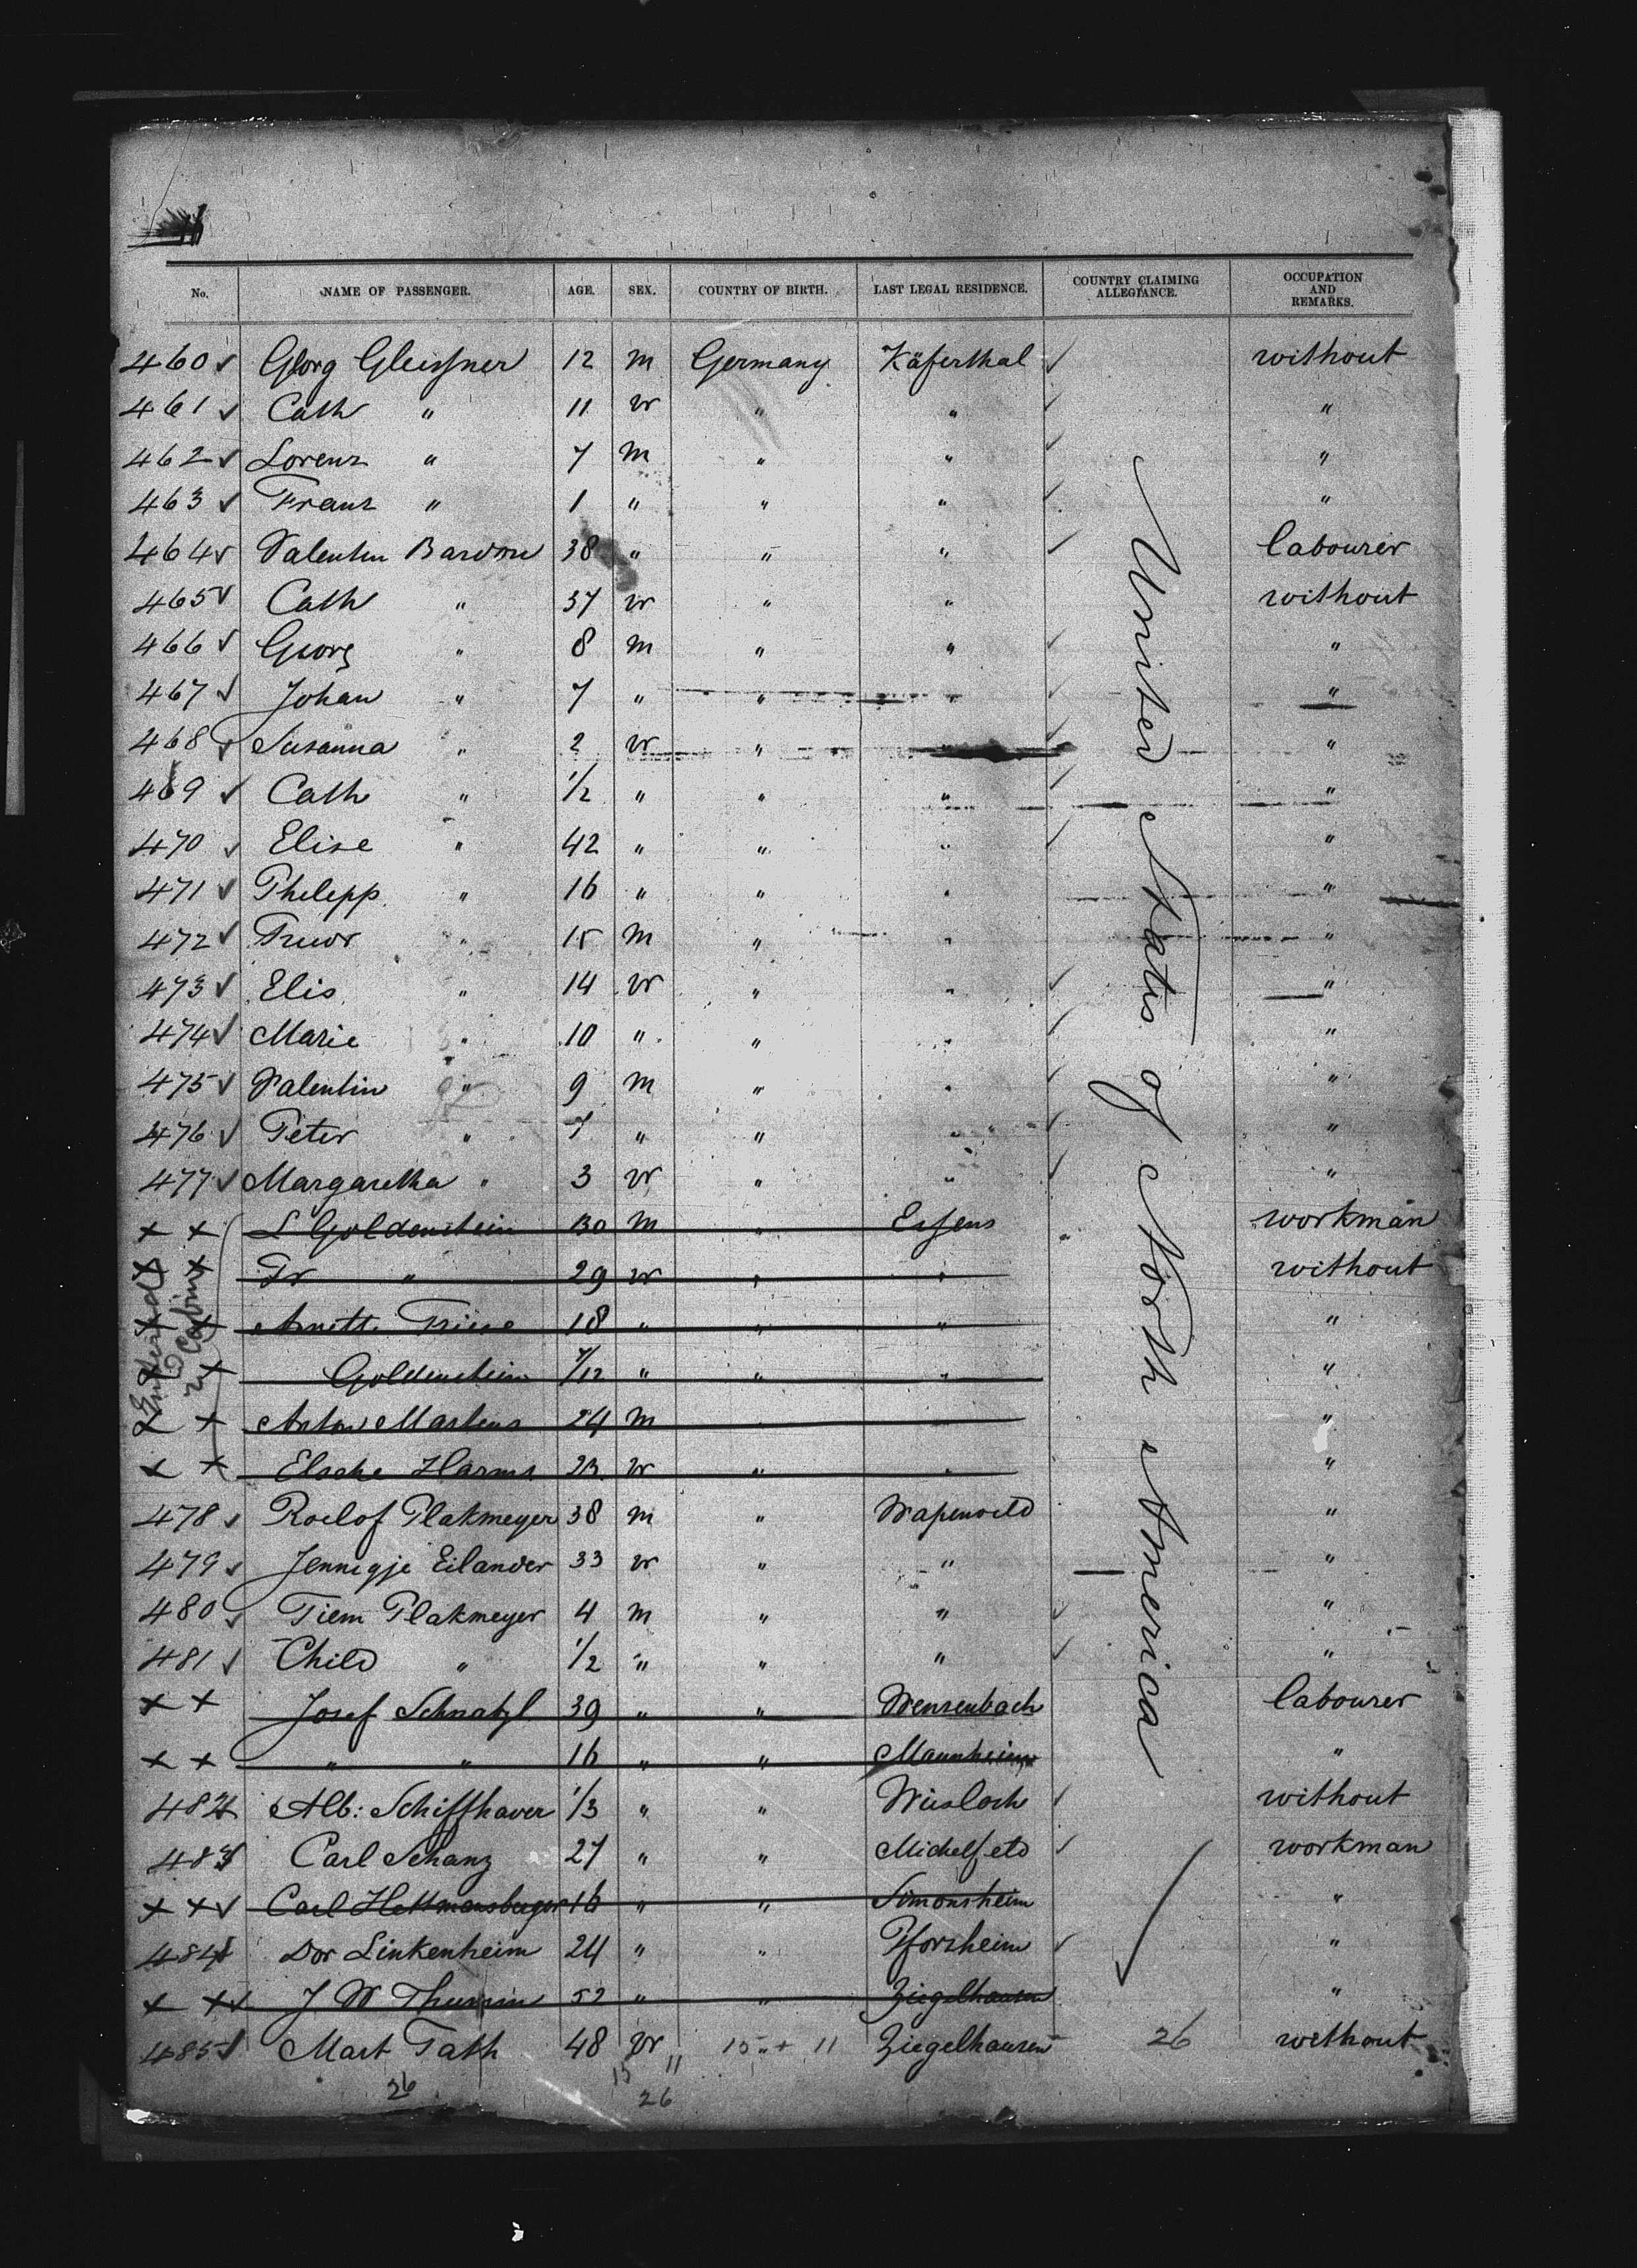 No. NAME OF PASSENGER. AGE. SEX. COUNTRY OF BIRTH. LAST LEGAL RESIDENCE. COUNTRY CLAIMING ALLEGIANCE. OCCUPATION AND REMARKS.
460 Georg Gleissner 12 m Germany Käferthal without
461 Cath " 11 w " " "
462 Lorenz " 7 m " " "
463 Franz " 1 " " " "
464 Valentin Bardon 38 " " " labourer
465 Cath " 37 w " " without
466 Georg " 8 m " " "
467 Johan " 7 " " " "
468 Susanna " 2 w " " "
469 Cath " 1/2 " " " "
470 Elise " 42 " " " "
471 Philepp " 16 " " " "
472 " 15 m " " "
473 Elis " 14 w " " "
474 Marie " 10 " " " "
475 Valentin " 9 m " " "
476 Peter " 7 " " " "
477 Margaretha " 3 w " " "
x x L Goldenstein 30 m " Essens " workman
x x Fr " 29 w " " without
x x Annette Friese 18 " " " "
x x Goldenstein 7/12 " " " "
x x Anton Martens 24 m " "
x x Elsche Harms 23 w " " "
Entered 2 Cabin
478 Roelof Plakmeyer 38 m " Wapenveld "
479 Jennigje Eilander 33 w " " "
480 Tiem Plakmeyer 4 m " " "
481 Child " 1/2 " " " "
x x Josef Schnatzl 39 " " Wenzenbach labourer
x x " " 16 " " Mannheim "
482 Alb: Schiffhaver 1/3 " " Wiesloch without
483 Carl Schanz 27 " " Michelfeld workman
x x Carl Hettmansberger 16 " " Simonsheim "
484 Dor Linkenheim 24 " " Pforzheim "
x x J W Thumm 52 " " Ziegelhausen "
485 Mart Fath 48 w 15 + 11 Ziegelhausen 26 without
United States of North America
26 15 11
26